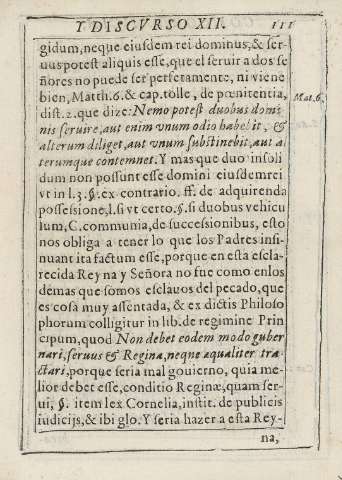 Y DISCVRSO XII. 111
gidum, neque eiusdem rei dominus, & ser-
uus potest aliquis esse, que el seruir a dos se
ñores no puede ser perfetamente, ni viene
bien, Matth. 6. & cap. tolle, de pœnitentia,
dist. 2. que dize: Nemo potest duobus domi-
nis seruire, aut enim vnum odio habebit, &
alterum diliget, aut vnum substinebit, aut a
terumque contemnet. Y mas que duo insoli
dum non possunt esse domini eiusdem rei
vt in l. 3. §. ex contrario. ff. de adquirenda
possesione, l. si vt certo. §. si duobus vehicu
lum, C. communia, de succesionibus, esto
nos obliga a tener lo que los Padres insi-
nuant ita factum esse, porque en esta escla-
recida Reyna y Señora no fue como en los
demas que somos esclauos del pecado, que
es cosa muy assentada, & ex dictis Philoso
phorum colligitur in lib. de regimine Prin
cipum, quod Non debet eodem modo guber
nari, seruus & Reginæ, neque æqualiter tra-
ctari, porque seria mal gouierno, quia me
lior debet esse, conditio Reginæ, quam ser-
ui, §. item lex Cornelia, instit. de publicis
iudicijs, & ibi glo. Y seria hazer a esta Rey-
na,
Mat. 6.